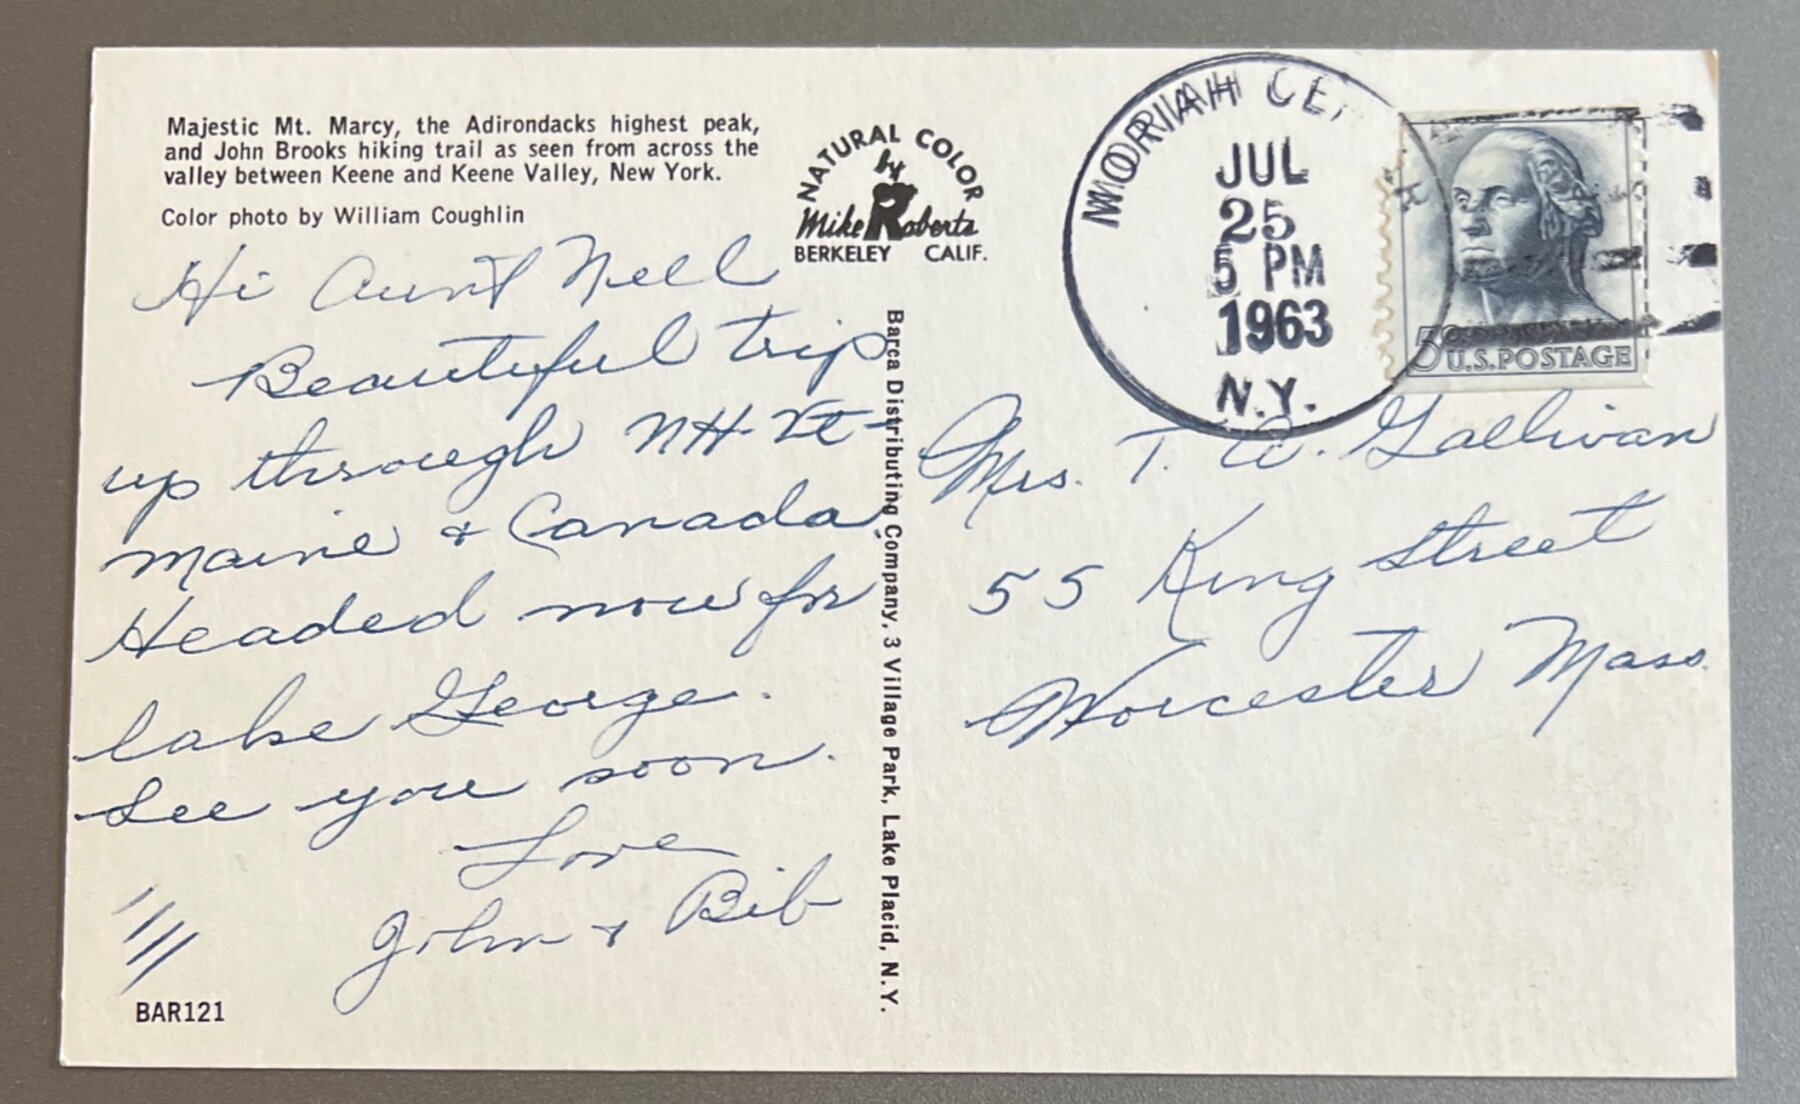 Majestic Mt. Marcy, the Adirondacks highest peak,
and John Brooks hiking trail as seen from across the
valley between Keene and Keene Valley, New York.
Color photo by William Coughlin
NATURAL COLOR
by
Mike Roberts
BERKELEY CALIF.
Hi Aunt Nell
Beautiful trip
up through NH-Vt-
Maine + Canada.
Headed now for
Lake George.
See you soon.
Love
John + Bib
BAR121
Barca Distributing Company, 3 Village Park, Lake Placid, N.Y.
MORIAH
JUL
25
5 PM
1963
N.Y.
5¢
U.S. POSTAGE
Mrs. T. A. Gallivan
55 King Street
Worcester Mass.